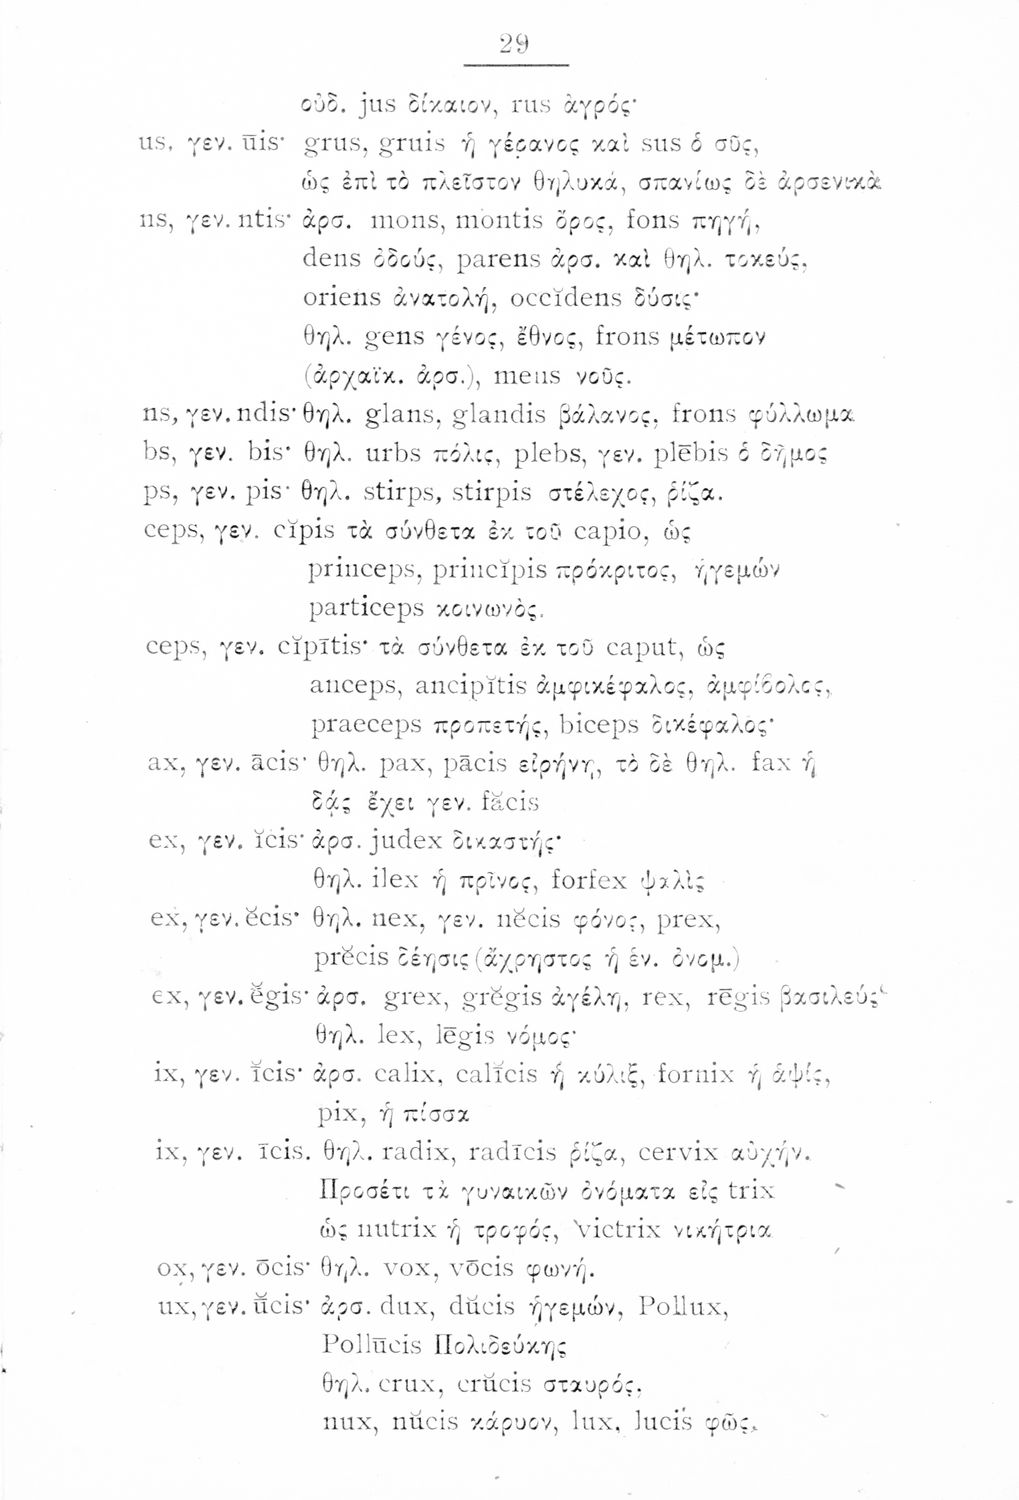 29
οὐδ. jus δίκαιον, rus ἀγρός·
us, γεν. ŭis· grus, gruis ἡ γέρανος καὶ sus ὁ σῦς,
ὡς ἐπὶ τὸ πλεῖστον θηλυκά, σπανίως δὲ ἀρσενικὰ
ns, γεν. ntis· ἀρσ. mons, montis ὄρος, fons πηγή,
dens ὀδούς, parens ἀρσ. καὶ θηλ. τοκεύς,
oriens ἀνατολή, occĭdens δύσις·
θηλ. gens γένος, ἔθνος, frons μέτωπον
(ἀρχαϊκ. ἀρσ.), mens νοῦς.
ns, γεν. ndis· θηλ. glans, glandis βάλανος, frons φύλλωμα
bs, γεν. bis· θηλ. urbs πόλις, plebs, γεν. plēbis ὁ δῆμος
ps, γεν. pis· θηλ. stirps, stirpis στέλεχος, ῥίζα.
ceps, γεν. cĭpis τὰ σύνθετα ἐκ τοῦ capio, ὡς
princeps, princĭpis πρόκριτος, ἡγεμών
particeps κοινωνὸς.
ceps, γεν. cĭpĭtis· τὰ σύνθετα ἐκ τοῦ caput, ὡς
anceps, ancipĭtis ἀμφικέφαλος, ἀμφίβολος,
praeceps προπετής, biceps δικέφαλος·
ax, γεν. ācis· θηλ. pax, pācis εἰρήνη, τὸ δὲ θηλ. fax ἡ
δᾴς ἔχει γεν. făcis
ex, γεν. ĭcis· ἀρσ. judex δικαστής·
θηλ. ilex ἡ πρῖνος, forfex ψαλὶς
ex, γεν. ĕcis· θηλ. nex, γεν. nĕcis φόνος, prex,
prĕcis δέησις (ἄχρηστος ἡ ἑν. ὀνομ.)
ex, γεν. ĕgis· ἀρσ. grex, grĕgis ἀγέλη, rex, rēgis βασιλεύς·
θηλ. lex, lēgis νόμος·
ix, γεν. ĭcis· ἀρσ. calix, calĭcis ἡ κύλιξ, fornix ἡ ἁψίς,
pix, ἡ πίσσα
ix, γεν. īcis. θηλ. radix, radīcis ῥίζα, cervix αὐχήν.
Προσέτι τὰ γυναικῶν ὀνόματα εἰς trix
ὡς nutrix ἡ τροφός, victrix νικήτρια
ox, γεν. ōcis· θηλ. vox, vōcis φωνή.
ux, γεν. ŭcis· ἀρσ. dux, dŭcis ἡγεμών, Pollux,
Pollūcis Πολιδεύκης
θηλ. crux, crŭcis σταυρός,
nux, nŭcis κάρυον, lux, lucis φῶς,